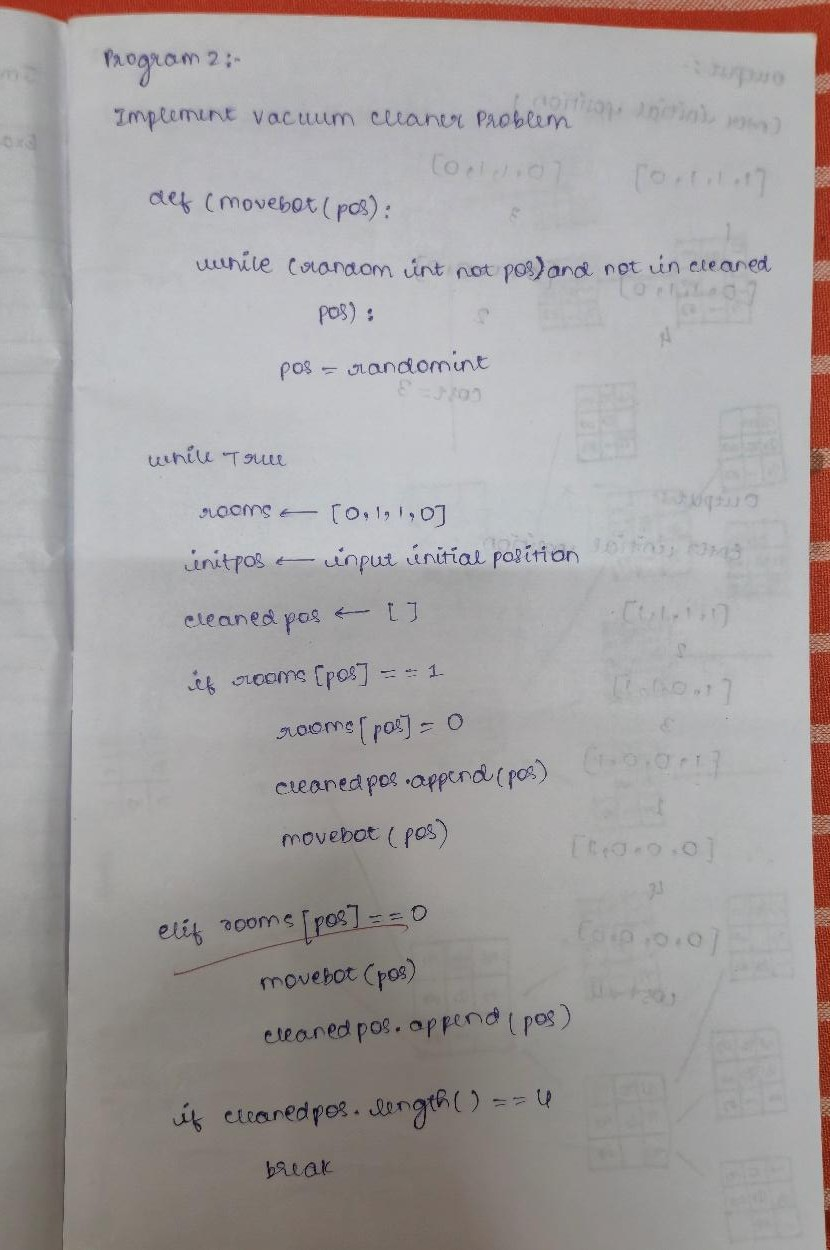 Program 2:-
Implement vacuum cleaner Problem
def (movebot(pos):
while (random int not pos) and not in cleaned
pos):
pos = randomint
while True
rooms ← [0,1,1,0]
initpos ← input initial position
cleaned pos ← []
if rooms [pos] == 1
rooms[pos] = 0
cleanedpos.append(pos)
movebot (pos)
elif rooms [pos] == 0
movebot (pos)
cleanedpos.append(pos)
if cleanedpos.length() == 4
break